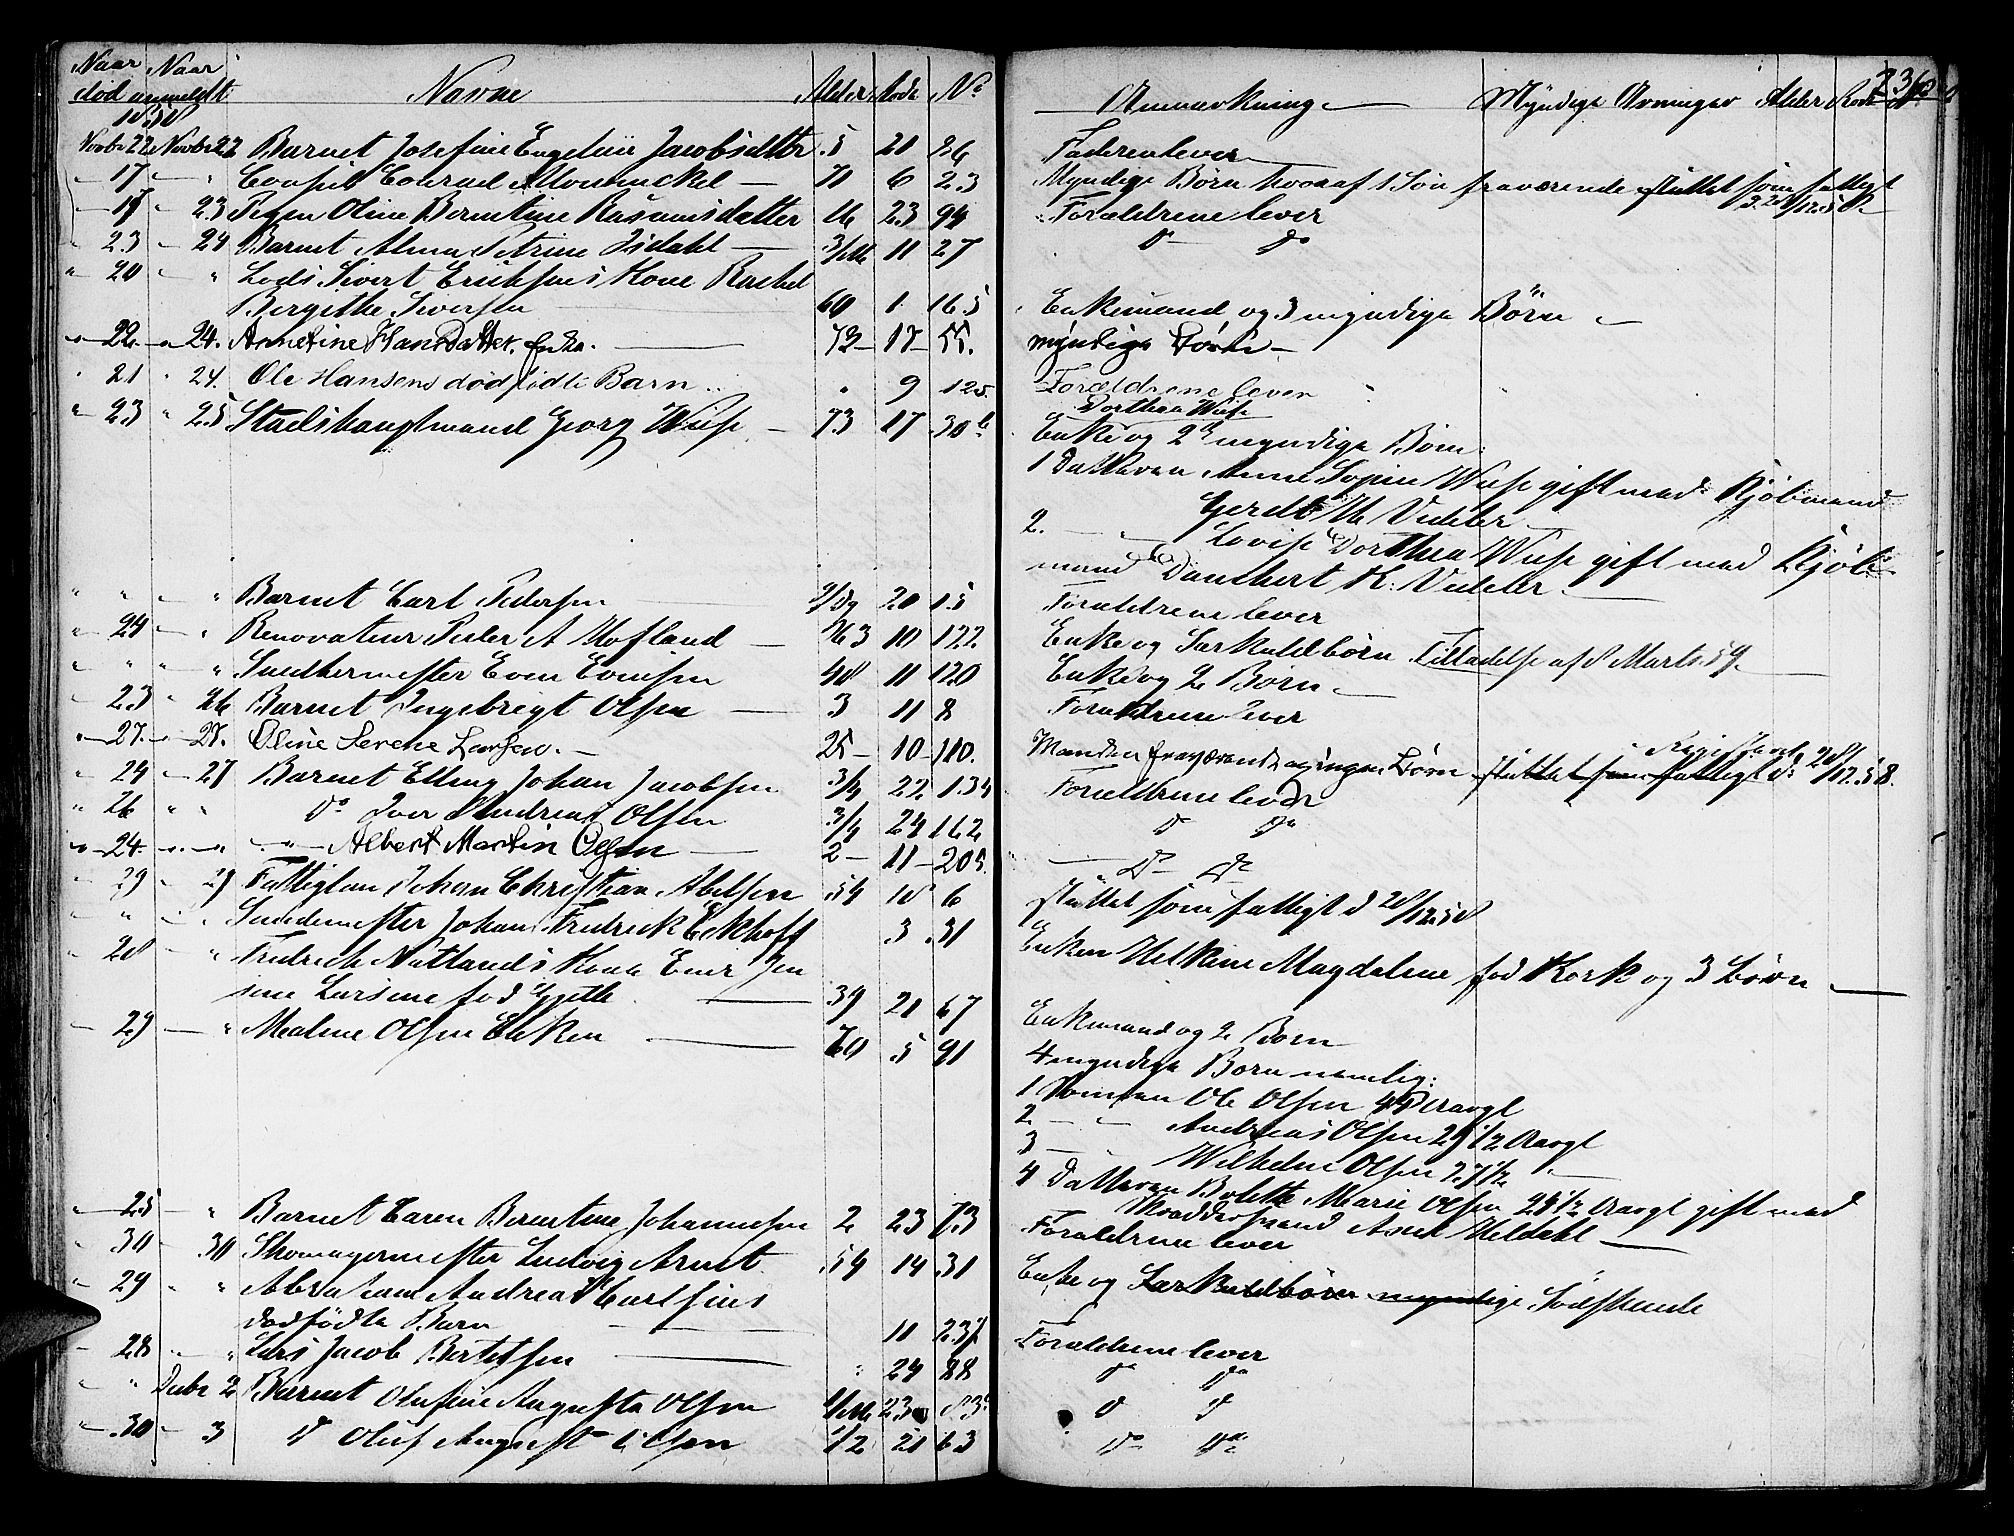 Naar død
Naar anmeldt
Navne
Alder
Rode
No
1858
Novbr 22 Novbr 22 Barnet Josefine Engeline Jacobsdtter 5 21 26
17 Conrad 71 6 23
23 Pigen Oline Berntine Rasmusdatter 16 23 94
23 24 Barnet Alma Petrine Isdahl 3/M 11 27
20 Lods Sivert Eriksens Kone Rachel
Bergithe Siversen 60 1 165
22 24. Annetine Hansdatter. Enke. 73 17 55.
21 24. Ole Hansens dødfødte Barn 9 125.
23 25 Stadshauptmand Georg Wiese 73 17 30b
Barnet Carl Pedersen 9/Dg 20 15
24 Renovateur Peder A Hofland 63 10 122
Snedkermester Even Evensen 48 11 120
23 26 Barnet Ingebrigt Olsen 3 11 8
27. 27. Oline Serene Larsen. 25 10 110.
24 27 Barnet Elling Johan Jacobsen 3/4 22 134
26 Do Iver Andreas Olsen 3/4 24 162
24 Albert Martin Olsen 2 11 205.
29 29 Fattiglem Johan Christian Abelsen 54 18 6
Smedemester Johan Fredrick Eckhoff 3 31
28 Fredrich Natlands Kone Enger Jen
sine Larsine fød 39 21 67
29 Malene Olsen Enken 70 5 91
25 Barnet Caren Berntine Johannesen 2 23 73
30 30 Skomagermester Ludvig Arnt 54 14 31
29 Abraham Andreas Carlsens
dødfødte Barn 11 237
28 Lars Jacob Bertelsen 24 88
Decbr 2 Barnet Olufine Augusta Olsen 23 83
30 3 Do Oluf August Olsen 1/2 21 63
236
Anmærkning
Myndige Arvinger
Alder
Rode
No
Faderen lever
Myndige Børn hvoraf 1 Søn fraværende sluttet som fattigt
Forældrene lever
Do Do
Enkemand og 3 myndige Børn
myndige Børn
Forældrene lever
Dorthea Wiese
Enke og 2 myndige Børn
1 Datteren Anne Sofie Wiese gift med Kjøbmand
Gerdt M Vedeler
2. Lovise Dorthea Wiese gift med Kjøb
mand Danckert K. Vedeler
Forældrene lever
Enke og Særkuldbørn Tilladelse af 8 Marts 59
Enke og 2 Børn
Forældrene lever
Manden fraværende og ingen Børn sluttet som fattigt d: 28/12.58.
Forældrene lever
Do Do
Do Do
sluttet som fattigt d 28/12.58
Enken Helkine Magdalene fød Kork og 3 Børn
Enkemand og 2 Børn
4 myndige Børn nemlig:
1 Sønnen Ole Olsen 44 Aargl
2 Andreas Olsen 29 1/2 Aargl
3 Wilhelm Olsen 27 1/2
4 Datteren Bolette Marie Olsen 28 1/2 Aargl gift med
Asser Heldahl
Forældrene lever
Enke og Særkuldbørn myndige Sødskende
Forældrene lever
Do Do
Do Do
Do Do